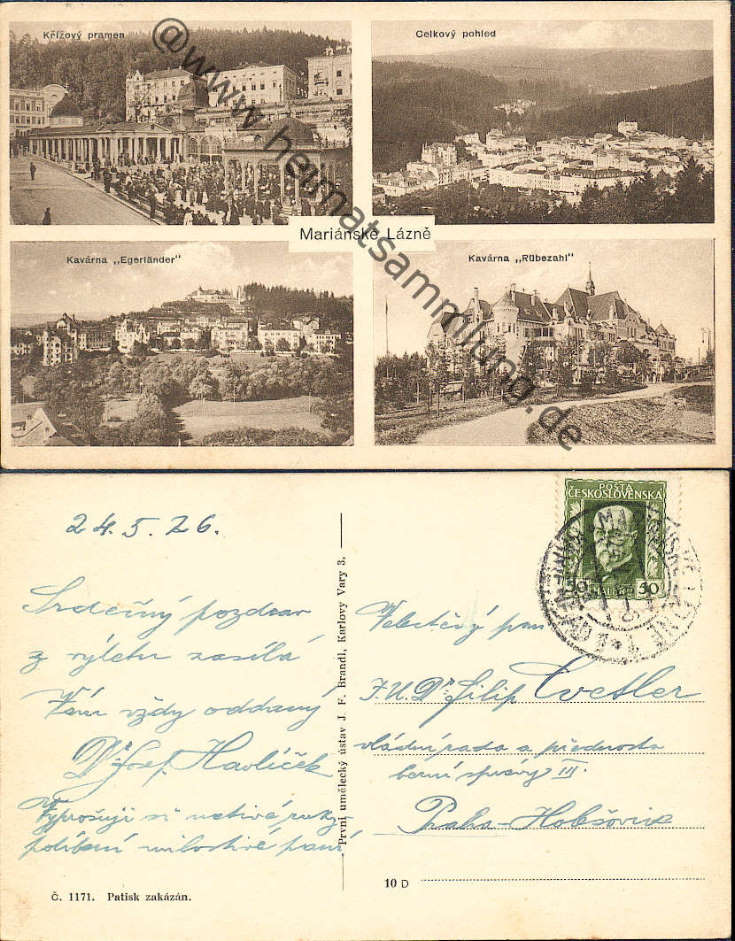 Křížový pramen
Celkový pohled
Mariánské Lázně
Kavárna „Egerländer"
Kavárna „Rübezahl"
@www.heimatsammlung.de
24.5.26.
Srdečný pozdrav
z výletu zasílá
Vám vždy oddaný
Dr Josef Havlíček
Vyprošuji si uctivé ruky-
políbení milostivé paní
Č. 1171. Patisk zakázán.
První umělecký ústav J. F. Brandl, Karlovy Vary 3.
POŠTA
ČESKOSLOVENSKA
50
Velectěný pan
J.U.Dr Filip
vládní rada a přednosta
berní správy III.
Praha-Holešovice
10 D